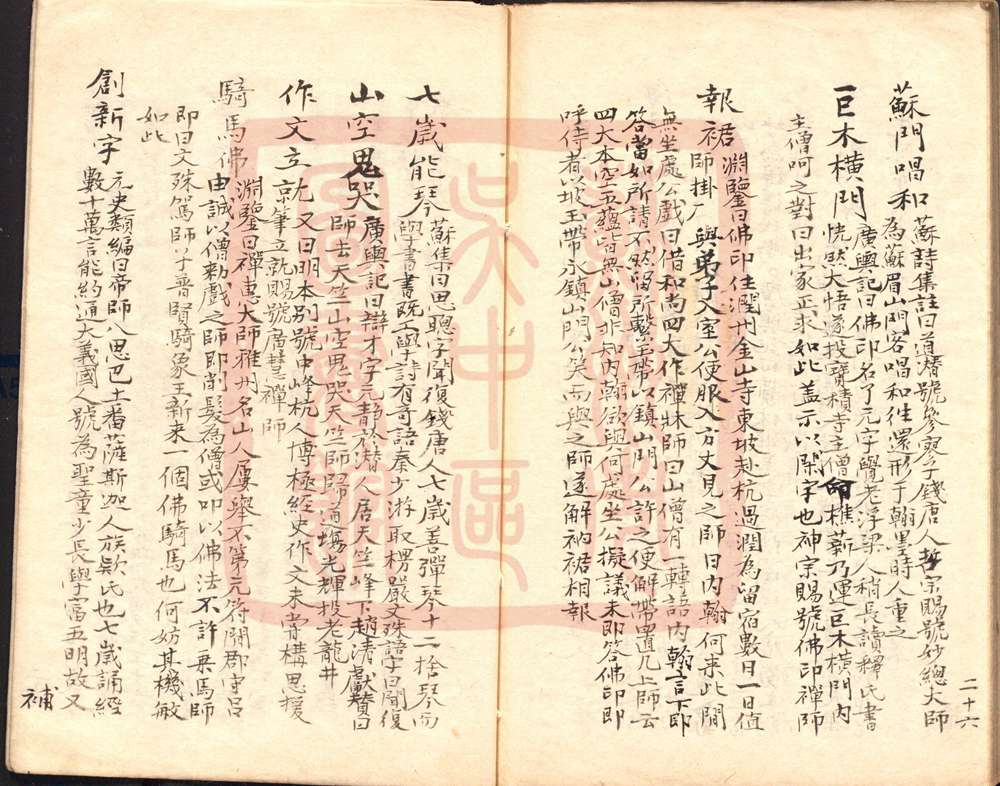 蘇門唱和 蘇詩集註曰道潛號參寥子錢唐人哲宗賜號妙總大師
為蘇眉山門客唱和往還形于翰墨時人重之
巨木橫門 廣輿記曰佛印名了元字覺老浮梁人稍長讀釋氏書
恍然大悟遂投寶積寺主僧命樵薪乃運巨木橫門內
主僧呵之對曰出家正求如此蓋示以閑字也神宗賜號佛印禪師
二十六
報裙 淵鑒曰佛印住潤州金山寺東坡赴杭過潤為留宿數日一日值
師掛厂與弟子入室公便服入方丈見之師曰內翰何來此間
無坐處公戲曰借和尚四大作禪牀師曰山僧有一轉語內翰言下即
答當如所請不然留所繫玉帶以鎮山門公許之便解帶置几上師云
四大本空五蘊皆無山僧非知內翰欲與何處坐公擬議未即答佛印即
呼侍者以坡玉帶永鎮山門公笑而與之師遂解衲裙相報
七歲能琴 蘇集曰思聰字聞復錢唐人七歲善彈琴十二捨琴而
學書書既工學詩有奇語秦少游取楞嚴文殊語字曰聞復
山空鬼哭 廣輿記曰辯才字元靜於潛人居天竺峰下趙清獻贊曰
師去天竺山空鬼哭天竺師歸道場光輝投老龍井
作文立就 又曰明本別號中峰杭人博極經史作文未嘗構思援
筆立就賜號廣慧禪師
騎馬佛 淵鑒曰禪惠大師雅州名山人屢舉不第元符閒郡守呂
由誠以僧勅戲之師即削髮為僧或叩以佛法不許乘馬師
即曰文殊駕師子普賢騎象王新來一個佛騎馬也何妨其機敏
如此
創新字 元史類編曰帝師八思巴土番薩斯迦人族欵氏也七歲誦經
數十萬言能約通大義國人號為聖童少長學富五明故又
補